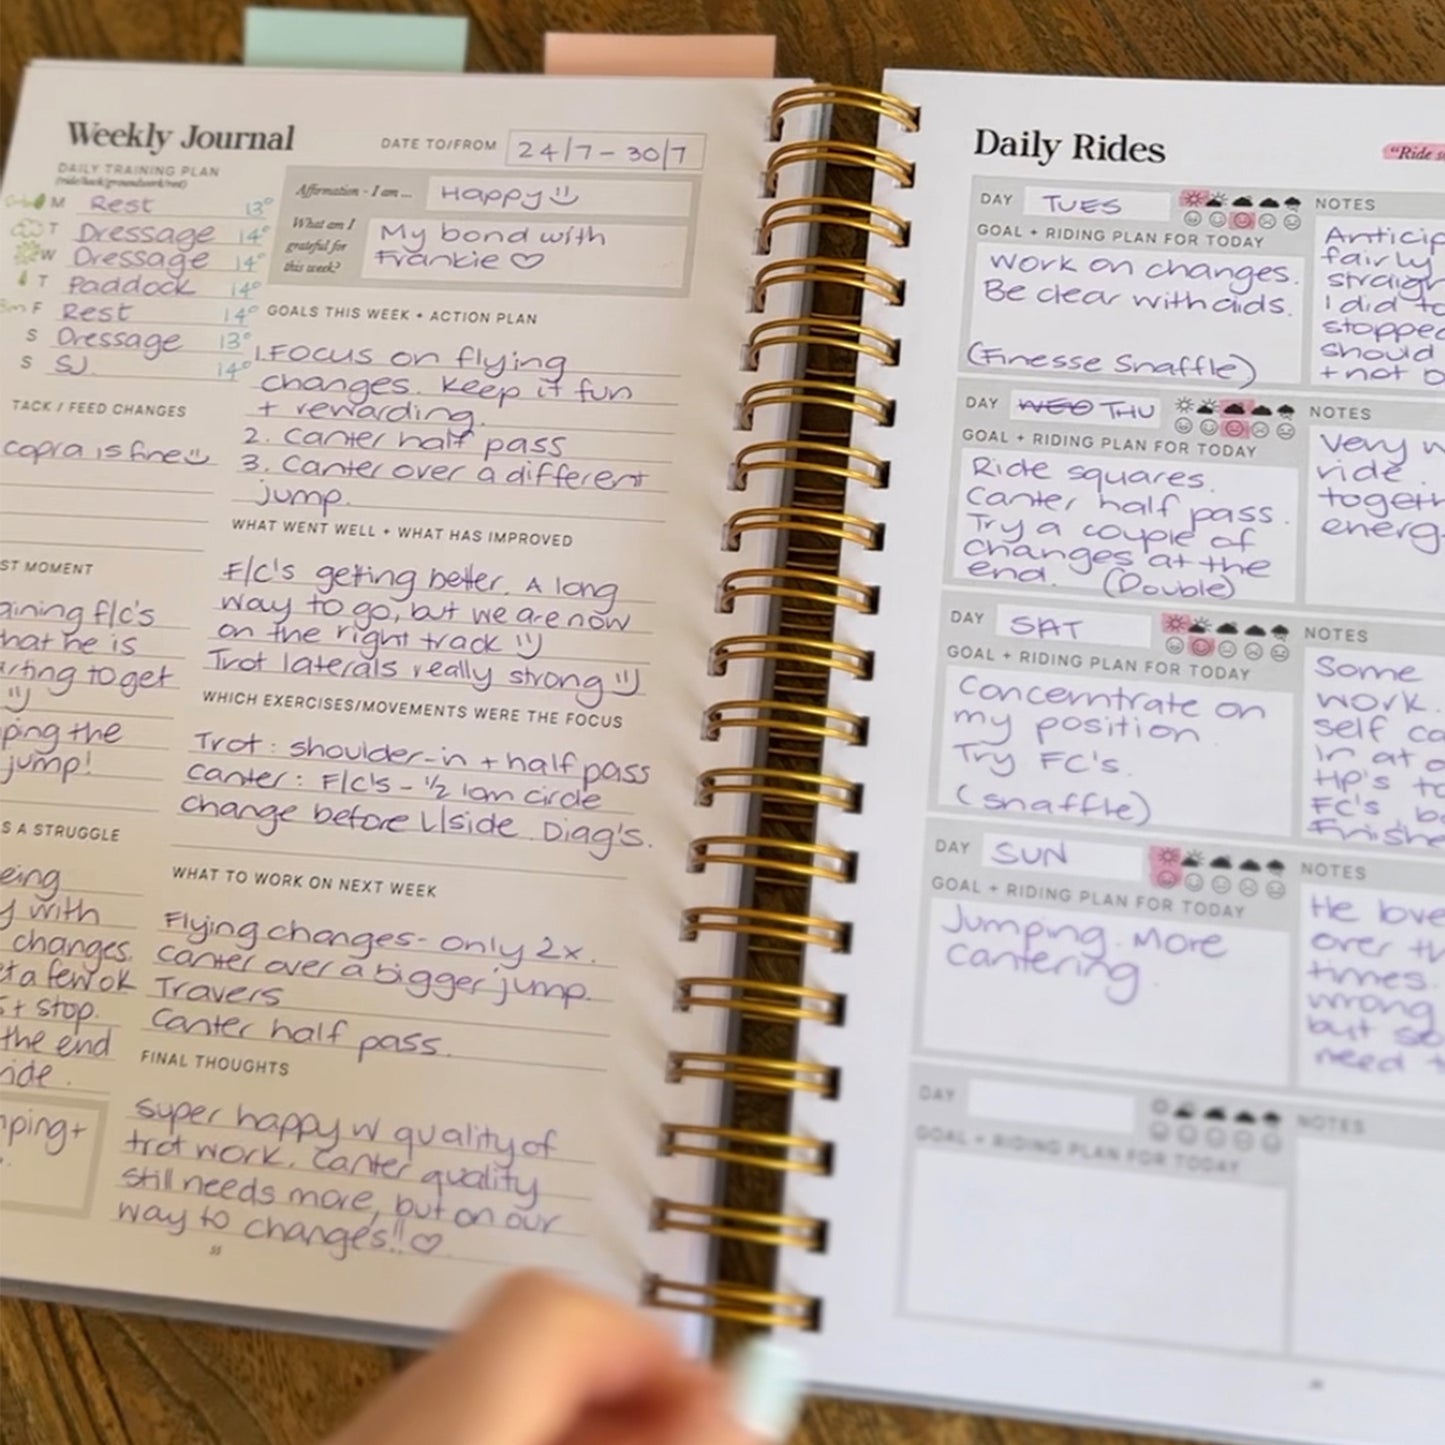 Weekly Journal
DATE TO/FROM 24/7 - 30/7
DAILY TRAINING PLAN
(ride/hack/groundwork/rest)
M Rest 13°
T Dressage 14°
W Dressage 14°
T Paddock 14°
F Rest 14°
S Dressage 13°
S SJ. 14°
Affirmation - I am ... Happy
What am I
grateful for
this week?
My bond with
Frankie ♡
TACK / FEED CHANGES
copra is fine
ST MOMENT
aining f/c's
hat he is
rting to get
ping the
jump!
S A STRUGGLE
eing
y with
changes.
t a few ok
+ stop.
the end
ride.
ping +
GOALS THIS WEEK + ACTION PLAN
1. Focus on flying
changes. Keep it fun
+ rewarding.
2. Canter half pass
3. Canter over a different
jump.
WHAT WENT WELL + WHAT HAS IMPROVED
F/C's getting better. A long
way to go, but we are now
on the right track
Trot laterals really strong
WHICH EXERCISES/MOVEMENTS WERE THE FOCUS
Trot: shoulder-in + half pass
Canter: F/C's - ½ 10m circle
change before L/side. Diag's.
WHAT TO WORK ON NEXT WEEK
Flying changes - only 2x.
Canter over a bigger jump.
Travers
Canter half pass.
FINAL THOUGHTS
Super happy w quality of
trot work. Canter quality
still needs more, but on our
way to changes!! ♡
Daily Rides
"Ride s
DAY TUES
NOTES
GOAL + RIDING PLAN FOR TODAY
Work on changes.
Be clear with aids.
(Finesse Snaffle)
Anticip
fairly
straigh
I did to
stopped
should
+ not o
DAY WED THU
NOTES
GOAL + RIDING PLAN FOR TODAY
Ride squares.
Canter half pass.
Try a couple of
changes at the
end. (Double)
Very w
ride.
togeth
energ
DAY SAT
NOTES
GOAL + RIDING PLAN FOR TODAY
Concerntrate on
my position
Try FC's.
(snaffle)
Some
work.
self ca
in at a
HP's to
FC's, b
Finishe
DAY SUN
NOTES
GOAL + RIDING PLAN FOR TODAY
Jumping. More
cantering.
He love
over th
times.
wrong
but so
need t
DAY
NOTES
GOAL + RIDING PLAN FOR TODAY